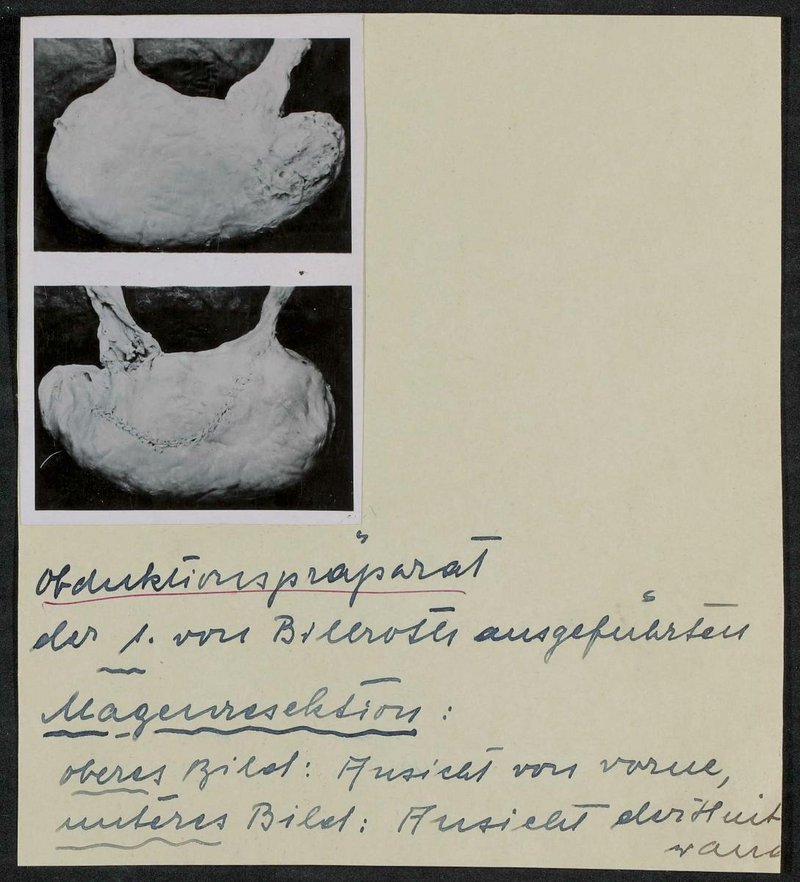 Obduktionspräparat
der 1. von Billroth ausgeführten
Magenresektion:
oberes Bild: Ansicht von vorne,
unteres Bild: Ansicht der
wand